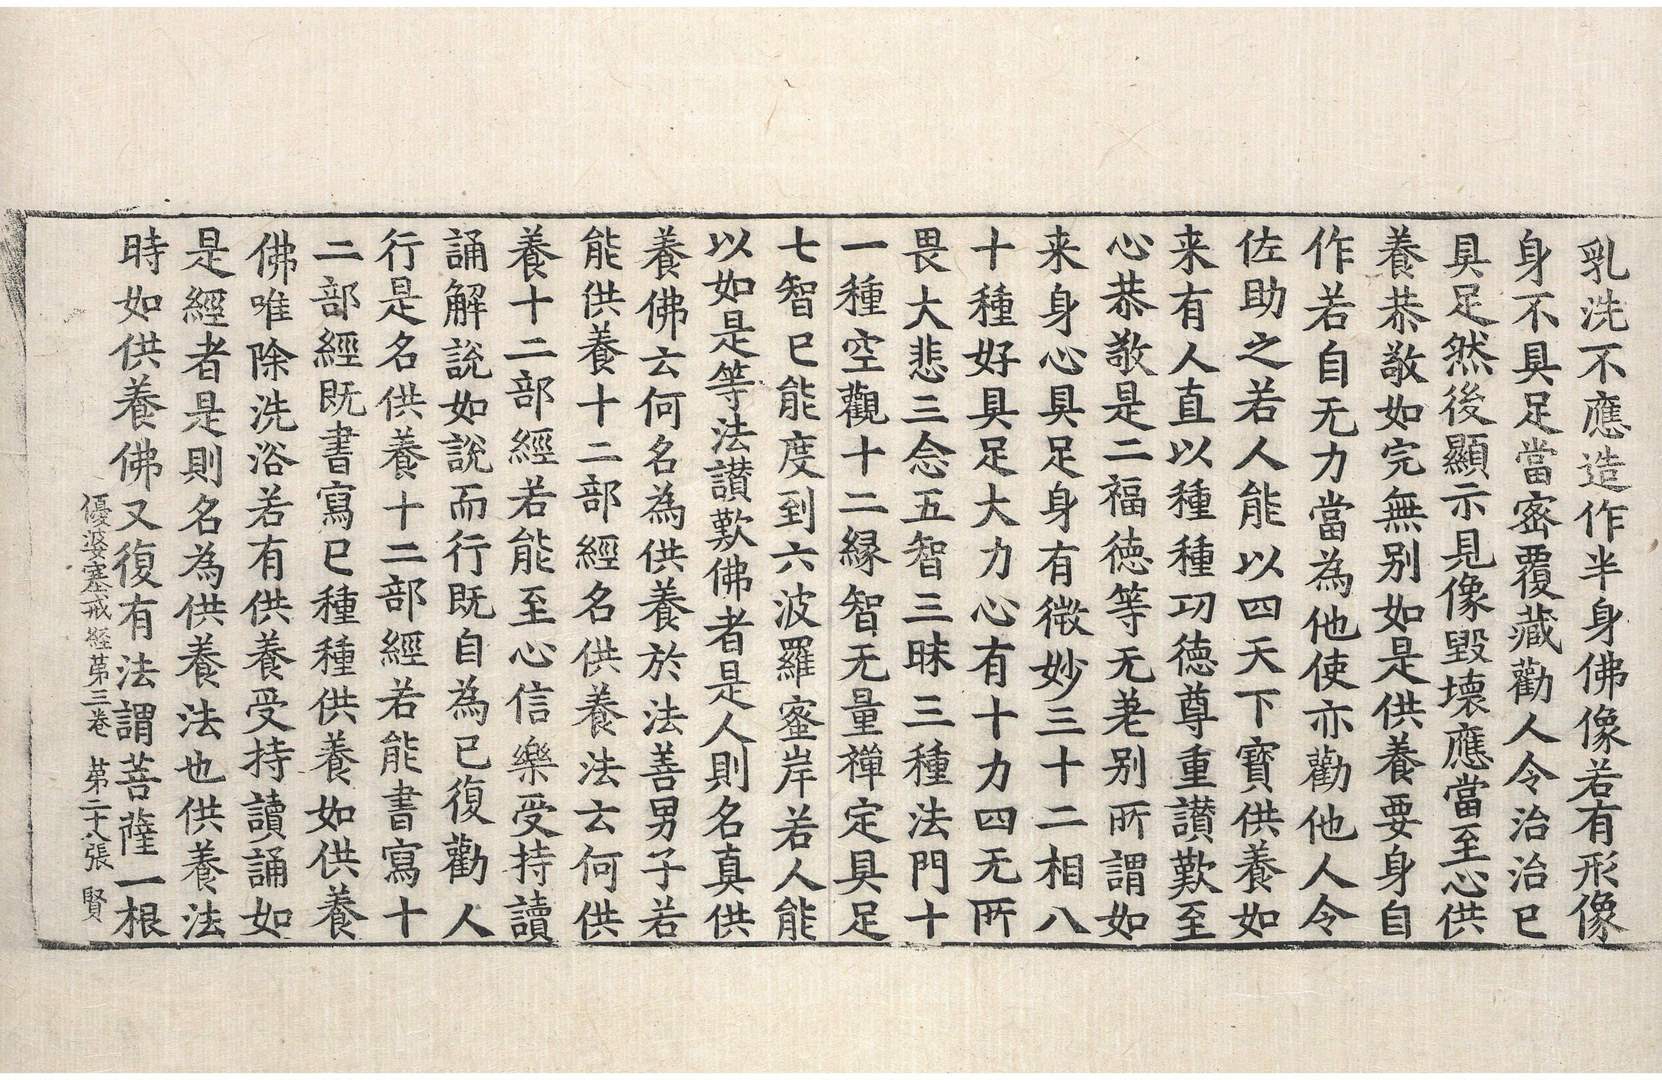 乳洗不應造作半身佛像若有形像
身不具足當密覆藏勸人令治治已
具足然後顯示見像毀壞應當至心供
養恭敬如完無别如是供養要身自
作若自无力當為他使亦勸他人令
佐助之若人能以四天下寶供養如
来有人直以種種功德尊重讃歎至
心恭敬是二福德等无差别所謂如
来身心具足身有微妙三十二相八
十種好具足大力心有十力四无所
畏大悲三念五智三昧三種法門十
一種空觀十二縁智无量禪定具足
七智已能度到六波羅蜜岸若人能
以如是等法讃歎佛者是人則名真供
養佛云何名為供養於法善男子若
能供養十二部經名供養法云何供
養十二部經若能至心信樂受持讀
誦解說如說而行既自為已復勸人
行是名供養十二部經若能書寫十
二部經既書寫已種種供養如供養
佛唯除洗浴若有供養受持讀誦如
是經者是則名為供養法也供養法
時如供養佛又復有法謂菩薩一根
優婆塞戒經苐三卷 苐二十八張 賢